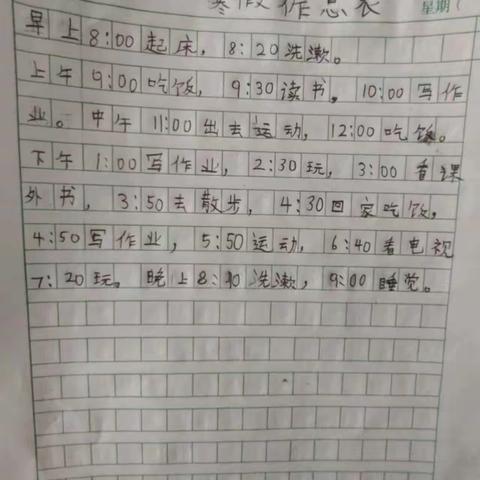 寒假作息表
星期(
早上8:00起床，8:20洗漱。
上午9:00吃饭，9:30读书。10:00写作
业。中午11:00出去运动，12:00吃饭。
下午1:00写作业，2:30玩，3:00看课
外书，3:50去散步，4:30回家吃饭，
4:50写作业，5:50运动，6:40看电视
7:20玩。晚上8:10洗漱，9:00睡觉。